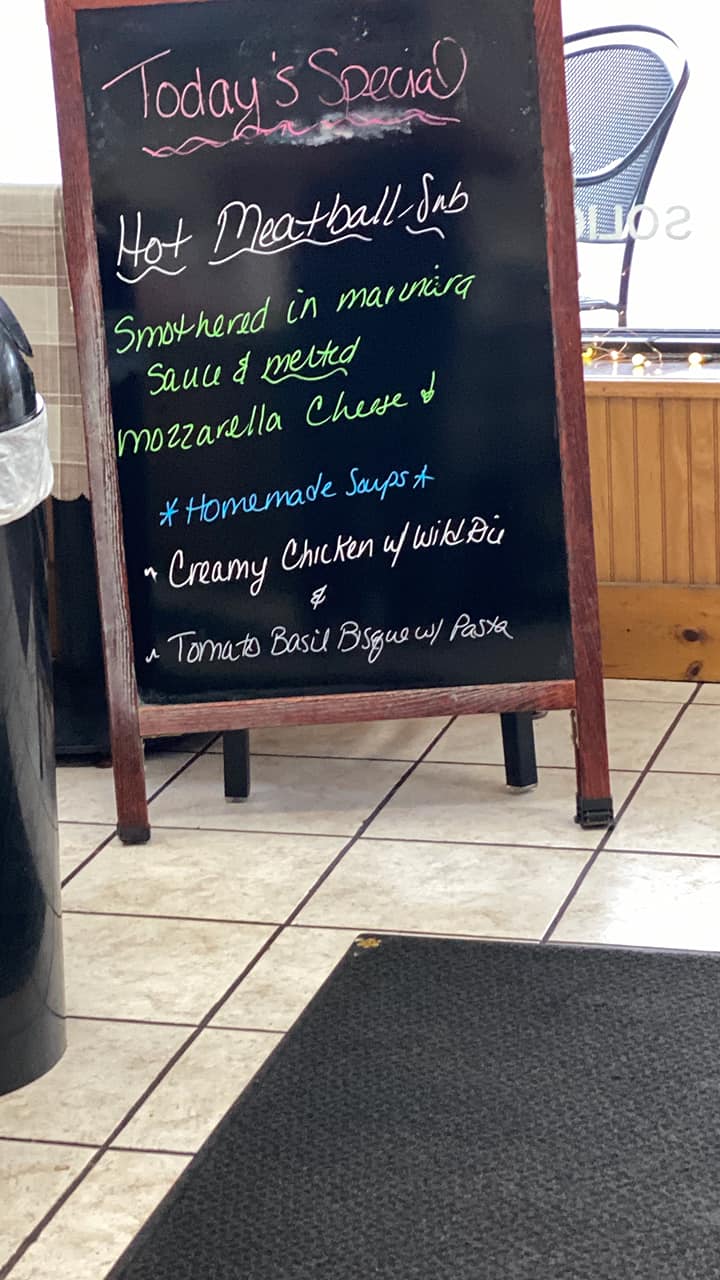 Today's Special
Hot Meatball Sub
Smothered in marinara
Sauce & melted
mozzarella Cheese
*Homemade Soups*
Creamy Chicken w/ Wild
&
Tomato Basil Bisque w/ Pasta
SOLIC